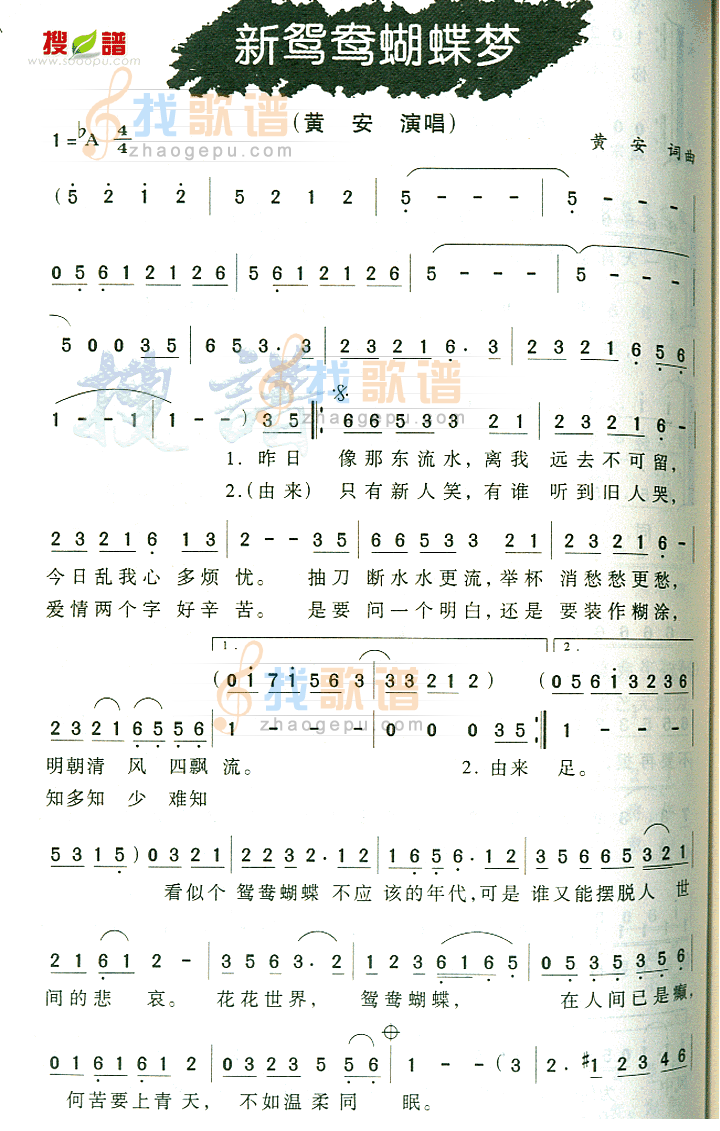 搜谱
www.sooopu.com
新鸳鸯蝴蝶梦
(黄 安 演唱)
1=♭A 4/4
黄 安 词曲
找歌谱
zhaogepu.com
(5 2 i 2 | 5 2 1 2 | 5 - - - | 5 - - -
0 5 6 1 2 1 2 6 | 5 6 1 2 1 2 6 | 5 - - - | 5 - - -
5 0 0 3 5 | 6 5 3 · 3 | 2 3 2 1 6 · 3 | 2 3 2 1 6 5 6
搜谱
找歌谱
zhaogepu.com
1 - - 1 | 1 - - ) 3 5 |: 6 6 5 3 3 2 1 | 2 3 2 1 6 -
1. 昨日 像那东流水,离我 远去不可留,
2.(由来) 只有新人笑,有谁 听到旧人哭,
2 3 2 1 6 1 3 | 2 - - 3 5 | 6 6 5 3 3 2 1 | 2 3 2 1 6 -
今日乱我心 多烦忧。 抽刀 断水水更流,举杯 消愁愁更愁,
爱情两个字 好辛苦。 是要 问一个明白,还是 要装作糊涂,
1. 2.
(0 1 7 1 5 6 3 3 3 2 1 2 ) (0 5 6 1 3 2 3 6
找歌谱
zhaogepu.com
2 3 2 1 6 5 5 6 | 1 - - - | 0 0 0 3 5 :| 1 - - -
明朝清 风 四飘流。 2.由来 足。
知多知 少 难知
5 3 1 5 ) 0 3 2 1 | 2 2 3 2 · 1 2 | 1 6 5 6 · 1 2 | 3 5 6 6 5 3 2 1
看似个 鸳鸯蝴蝶 不应 该的年代,可是 谁又能摆脱人 世
2 1 6 1 2 - | 3 5 6 3 · 2 | 1 2 3 6 1 6 5 | 0 5 3 5 3 5 6
间的悲 哀。 花花世界, 鸳鸯蝴蝶, 在人间已是癫,
0 1 6 1 6 1 2 | 0 3 2 3 5 5 6 | 1 - - (3 | 2 · #1 2 3 4 6
何苦要上青天, 不如温柔同 眠。